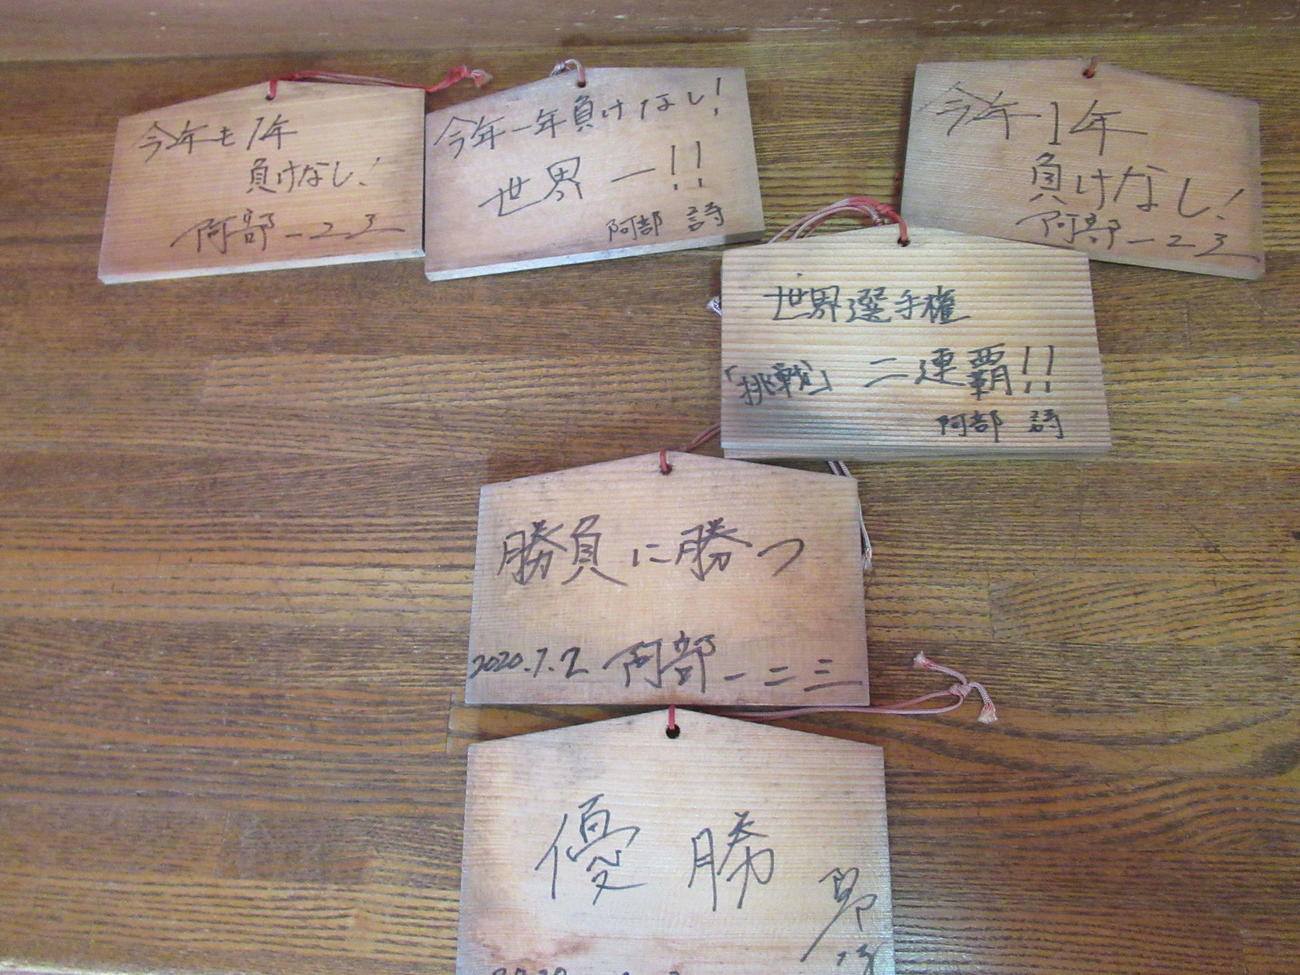 今年も1年
負けなし!
阿部一二三
今年一年負けなし!
世界一!!
阿部 詩
今年1年
負けなし!
阿部一二三
世界選手権
「挑戦」 二連覇!!
阿部 詩
勝負に勝つ
2020.7.2 阿部一二三
優勝